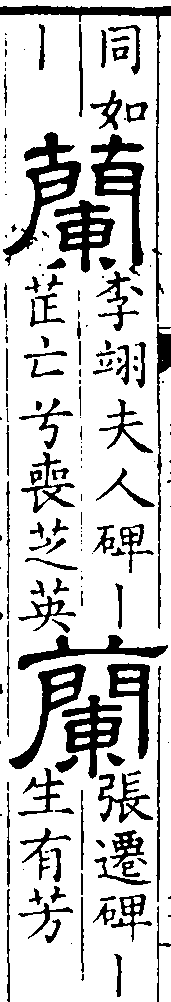 同如
丨
蘭
李翊夫人碑丨
芷亡兮喪芝英
蘭
張遷碑丨
生有芳